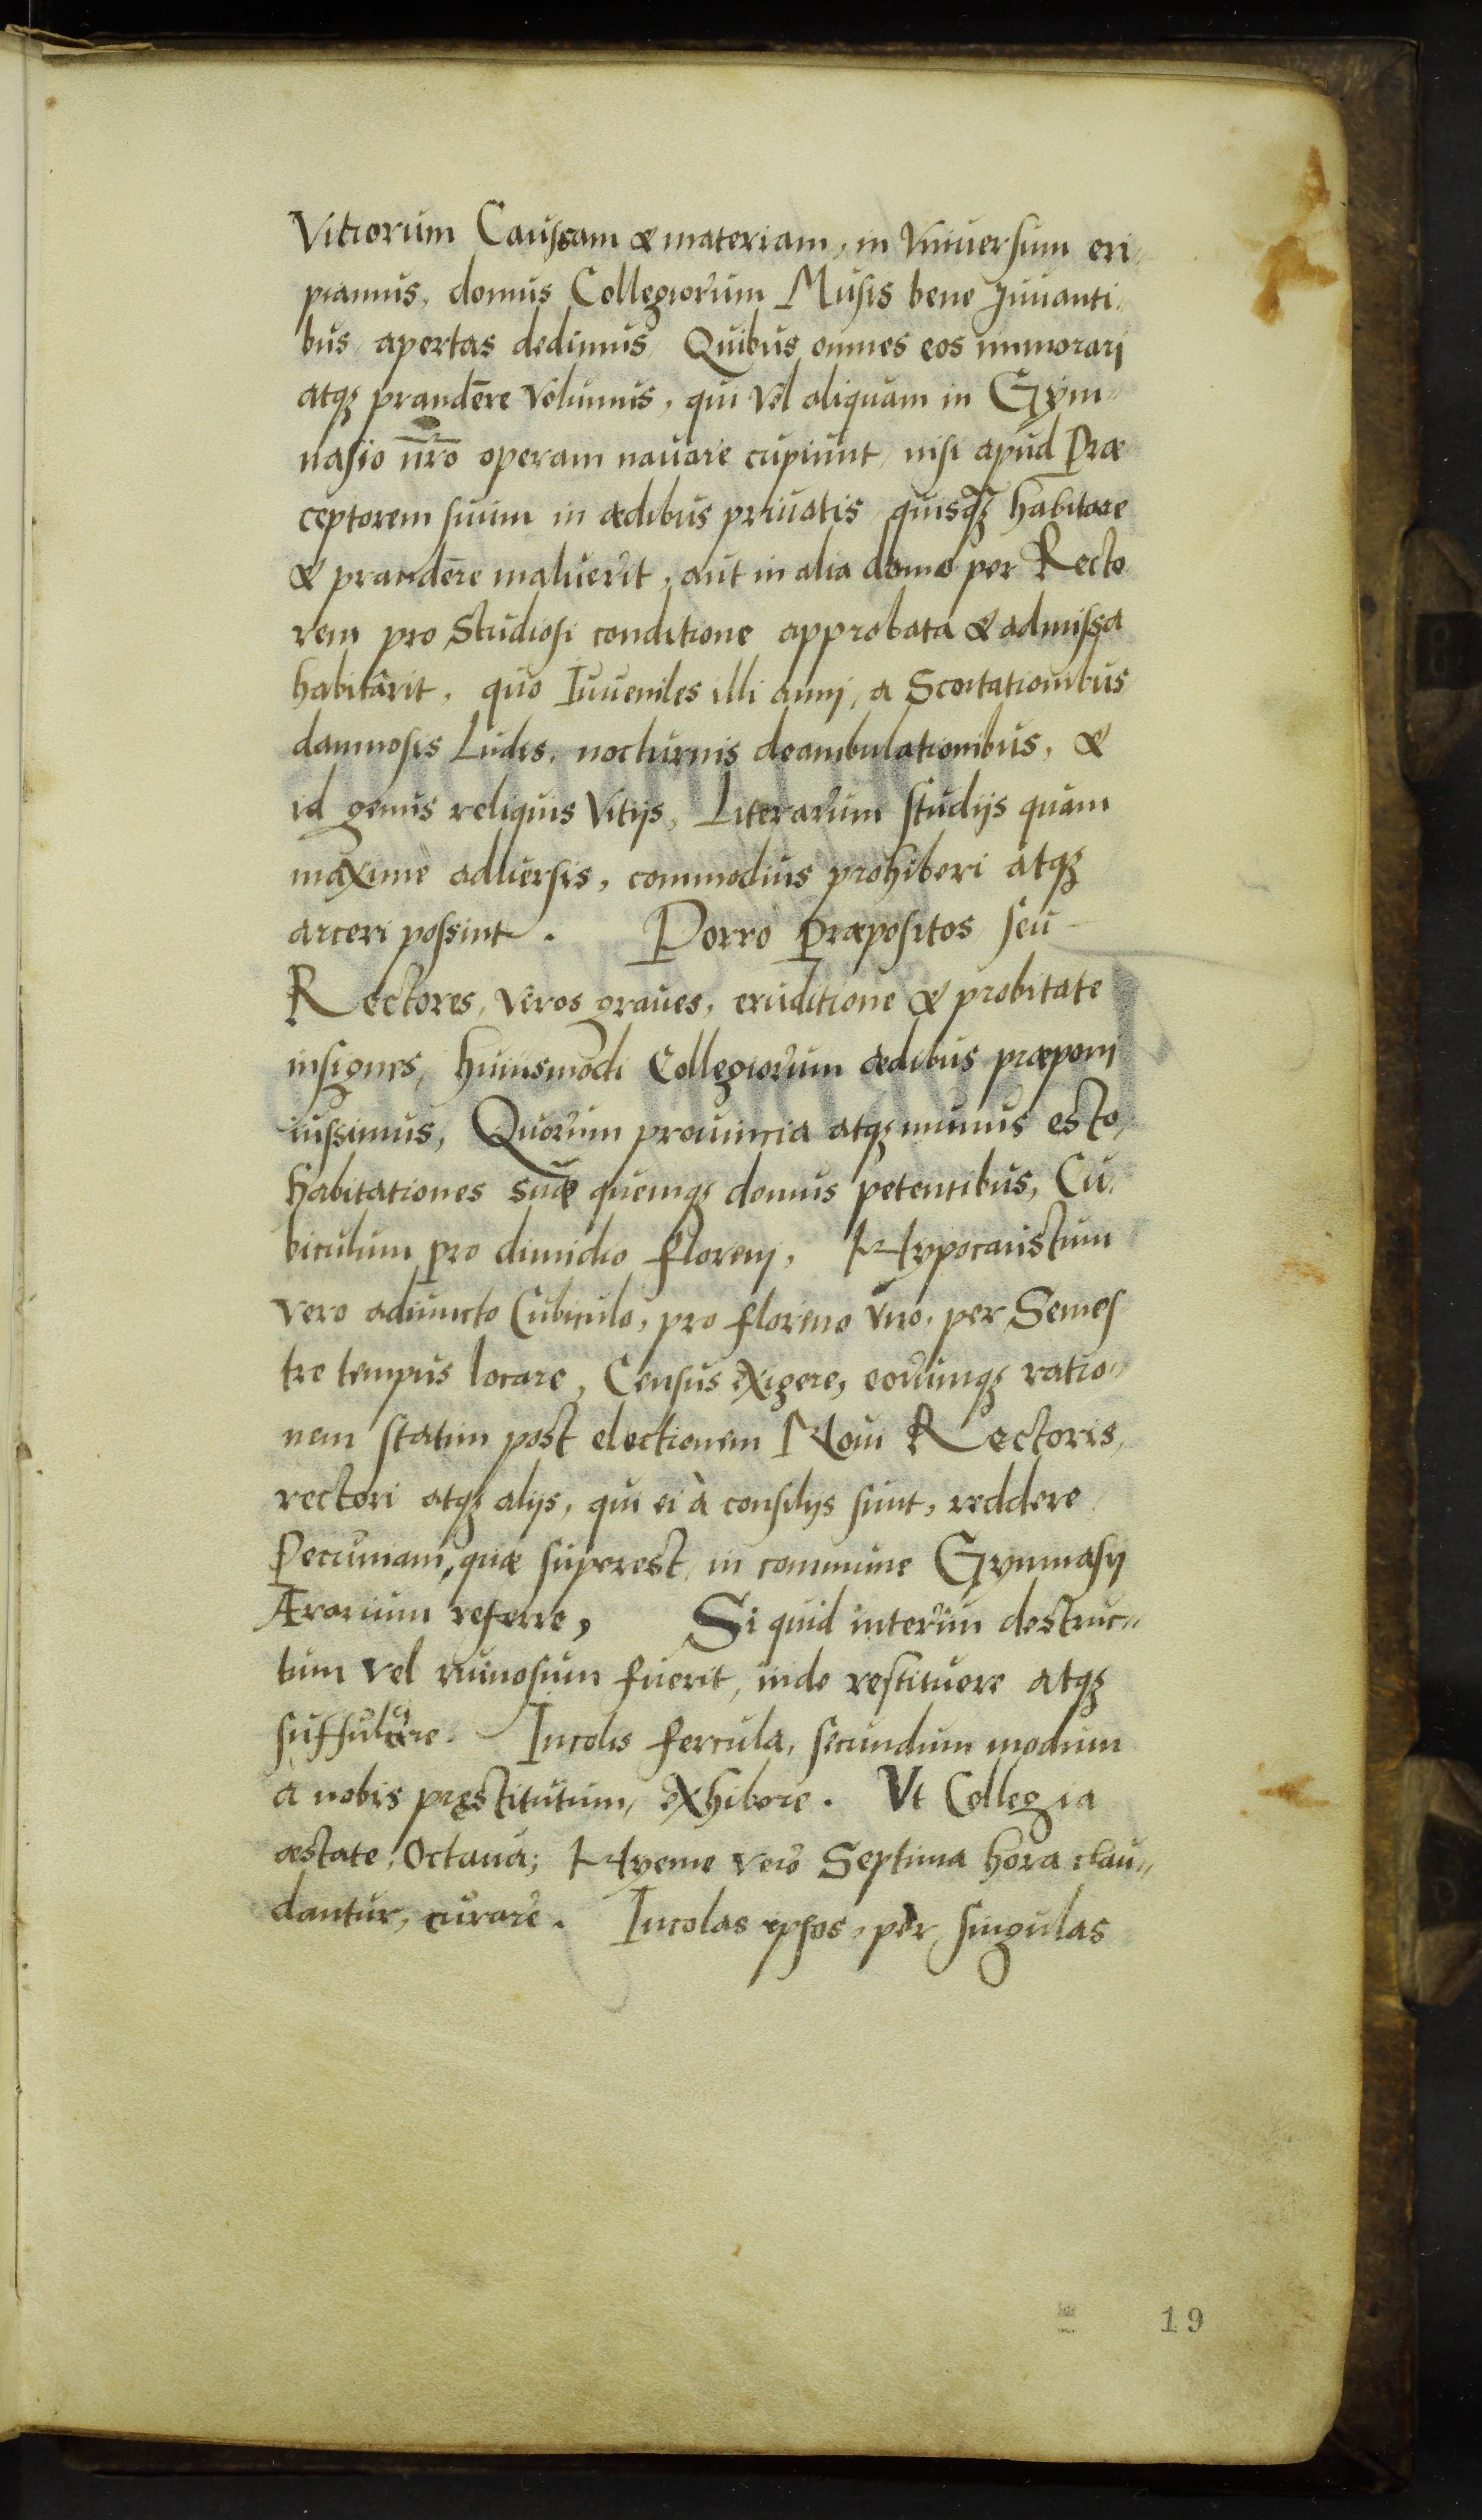 Vitiorum Caussam & materiam, in Vniuersum eri,
piamus, domus Collegiorum Musis bene Juuanti,
bus apertas dedimus, Quibus omnes eos immorari
atq; prandēre Volumus, qui Vel aliquam in Gÿm,,
nasio nr̄o operam nauare cupiunt, nisi apud Præ
ceptorem suum in ædibus priuatis, quisq; habitare
& prandēre maluerit, aut in alia domo per Recto
rem pro Studiosi conditione approbata & admissa
habitârit, quo Iuueniles illi annj, a Scortationibus
damnosis Ludis, nocturnis deambulationibus, &
id genus reliquis Vitijs, Literarum studijs quam
maximè aduersis, commodius prohiberi atq;
arceri possint. Porrò Præpositos seu
Rectores, Viros graues, eruditione & probitate
insignes, huiusmodi Collegiorum ædibus præponj
iussimus, Quorum prouincia atq; munus esto,
habitationes suæ quemq; domus petentibus, Cu,
biculum pro dimidio florenj, Hypocaustum
vero adiuncto Cubiculo, pro floreno Vno, per Semes
tre tempus locare, Census exigere, eorumq; ratio,,
nem statim post electionem Noui Rectoris,
rectori atq; alijs, qui ei à consilijs sunt, reddere
Pecuniam, quæ superest, in commune Gymnasij
Ærarium referre, Si quid interim destruc,,
tum vel ruinosum fuerit, inde restituere atq;
suffulcire. Incolis fercula, secundum modum
a nobis pręstitutum, exhibere. Vt Collegia
æstate, Octaua; Hyeme verò Septima hora clau,,
dantur, curare. Incolas ipsos, per singulas
19